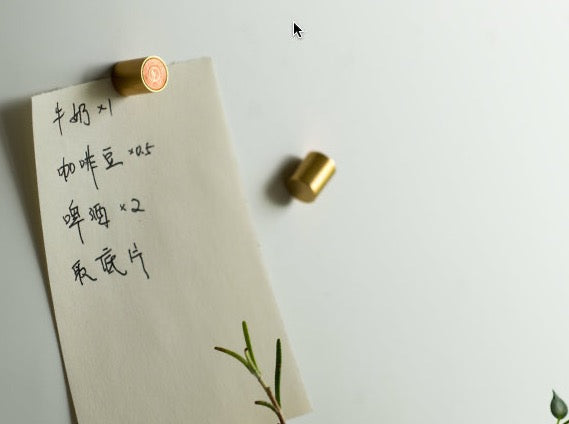 牛奶×1
咖啡豆×0.5
啤酒×2
取底片